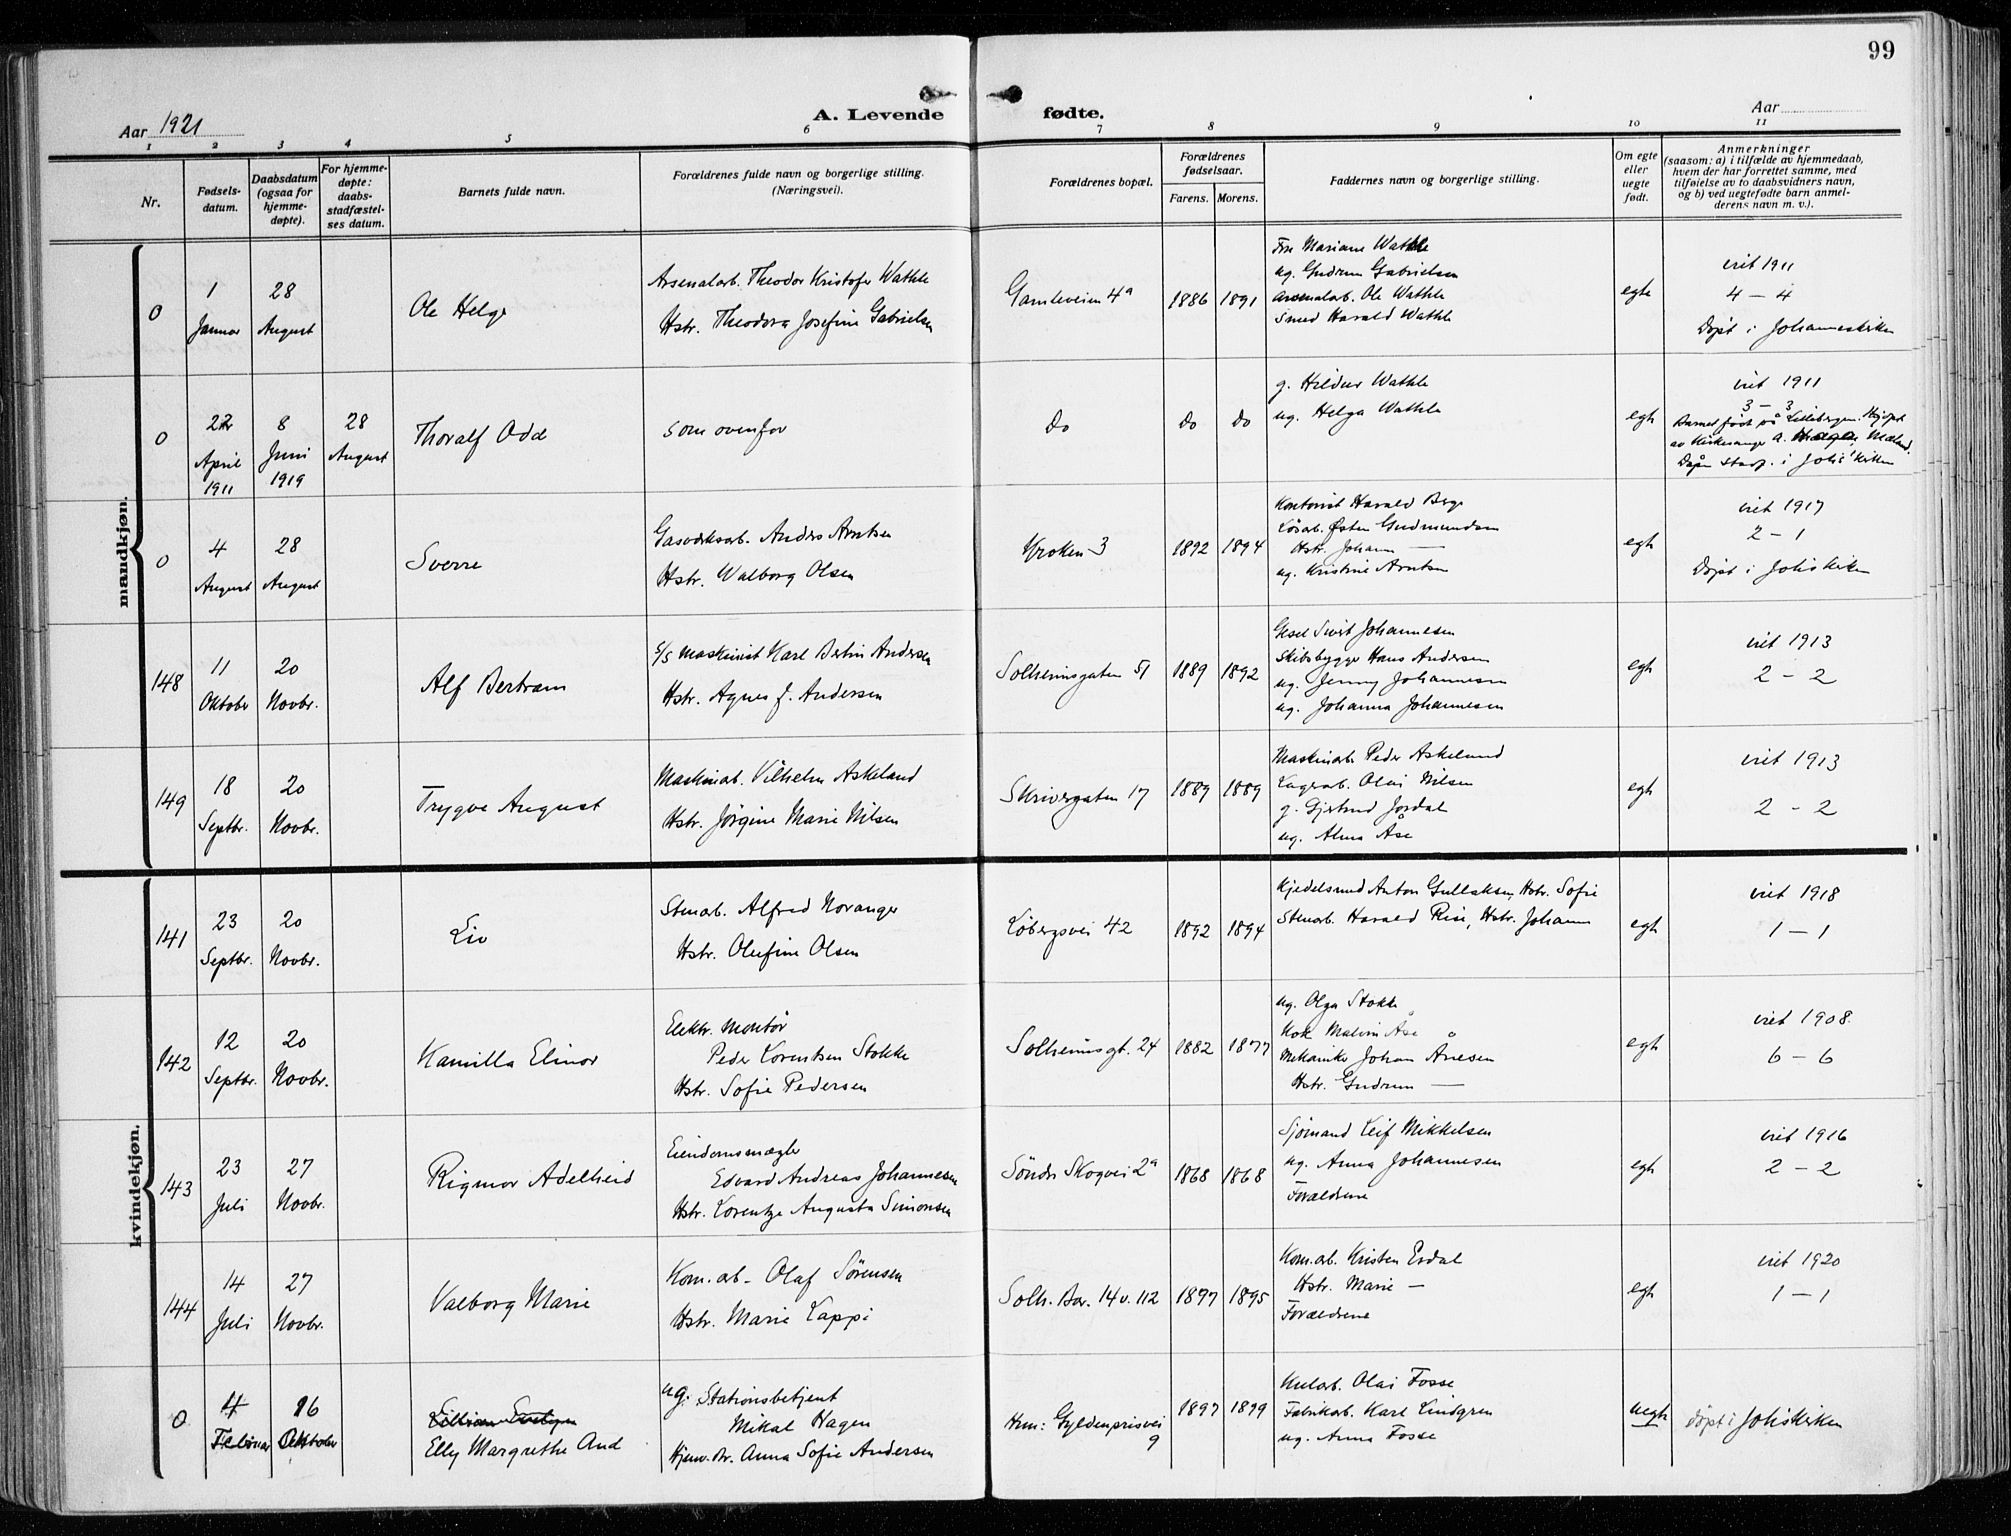 99
Aar 1921
A. Levende fødte.
Aar
1 2 3 4 5 6 7 8 9 10 11
Nr.
Fødsels-
datum.
Daabsdatum
(ogsaa for
hjemme-
døpte).
For hjemme-
døpte:
daabs-
stadfæstel-
ses datum.
Barnets fulde navn.
Forældrenes fulde navn og borgerlige stilling.
(Næringsvei).
Forældrenes bopæl.
Forældrenes
fødselsaar.
Farens. Morens.
Faddernes navn og borgerlige stilling.
Om egte
eller
uegte
født.
Anmerkninger
(saasom: a) i tilfælde av hjemmedaab,
hvem der har forrettet samme, med
tilføielse av to daabsvidners navn,
og b) ved uegtefødte barn anmel-
derens navn m. v.).
mandkjøn.
0
1
Januar
28
August
Ole Helge
Arsenalarb. Theodor Kristofer Wathle
Hstr. Theodora Josefine Gabrielsen
Gamleveien 4a
1886 1891
Fru Mariane Wathle
ug. Gudrun Gabrielsen
Arsenalarb. Ole Wathle
Smed Harald Wathle
egte
viet 1911
4 – 4
Døpt i Johanneskirken
0
April
1911
8
Juni
1919
28
August
Thoralf Odd
som ovenfor
do
do do
g. Hildur Wathle
ug. Helga Wathle
egte
viet 1911
3 – 3
Barnet født på
av Kirkesanger A. Mæland.
Dåpen stadf. i Johs'kirken
0
4
August
28
August
Sverre
Gasverksarb. Anders Arntsen
Hstr. Walborg Olsen
Kroken 3
1892 1894
Kontorist Harald Berge
Løsarb. Østen Gudmundsen
Hstr. Johann —
ug. Kristine Arntsen
egte
viet 1917
2 – 1
Døpt i Johskirken
148
11
Oktober
20
Novbr.
Alf Bertram
S/S Maskinist Karl Bertin Andersen
Hstr. Agnes J. Andersen
Solheimsgaten 51
1889 1892
Johannesen
Skibsbygger Hans Andersen
ug. Jenny Johannesen
ug. Johanna Johannesen
egte
viet 1913
2 – 2
149
18
Septbr.
20
Novbr.
Trygve August
Maskinarb. Vilhelm Askeland
Hstr. Jørgine Marie Nilsen
Skrivergaten 17
1889 1889
Maskinarb. Peder Askeland
Lagerarb. Olai Nilsen
g. Gjertrud Jordal
ug. Alma Åse
egte
viet 1913
2 – 2
kvindekjøn.
141
23
Septbr.
20
Novbr.
Liv
Stenarb. Alfred Noranger
Hstr. Olufine Olsen
Løbergsvei 42
1892 1894
Kjedelsmed Anton Gullaksen, Hstr. Sofie
Stenarb. Harald Rise, Hstr. Johann
egte
viet 1918
1 – 1
142
12
Septbr.
20
Novbr.
Kamilla Elinor
Elektr. montør
Peder Lorentsen Stokke
Hstr. Sofie Pedersen
Solheimsgt. 24
1882 1877
ug. Olga Stokke
Kok Malvin Åse
Mekaniker Johan Ånesen
Hstr. Gudrun —
egte
viet 1908.
6 – 6
143
23
Juli
27
Novbr.
Rigmor Adelheid
Eiendomsmægler
Edvard Andreas Johannesen
Hstr. Lorentze Augusta Simonsen
Søndr Skogvei 2a
1868 1868
Sjømand Leif Mikkelsen
ug. Anna Johannesen
Forældrene
egte
viet 1916
2 – 2
144
14
Juli
27
Novbr.
Valborg Marie
Kom.arb. Olaf Sørensen
Hstr. Marie Lappi
Solh. Bar. 14 v. 112
1897 1895
Kom.arb. Kristen Erdal
Hstr. Marie —
Forældrene
egte
viet 1920
1 – 1
0
4
Februar
16
Oktober
Lillian Evelyn
Elly Margrethe Aud
ug. Stationsbetjent
Mikal Hagen
Hjemv. Br. Anna Sofie Andersen
Hun: Gyldenprisvei
9
1897 1899
Kularb. Olai Fosse
Fabrikarb. Karl Lindgren
ug. Anna Fosse
uegte
døpt i Johskirken